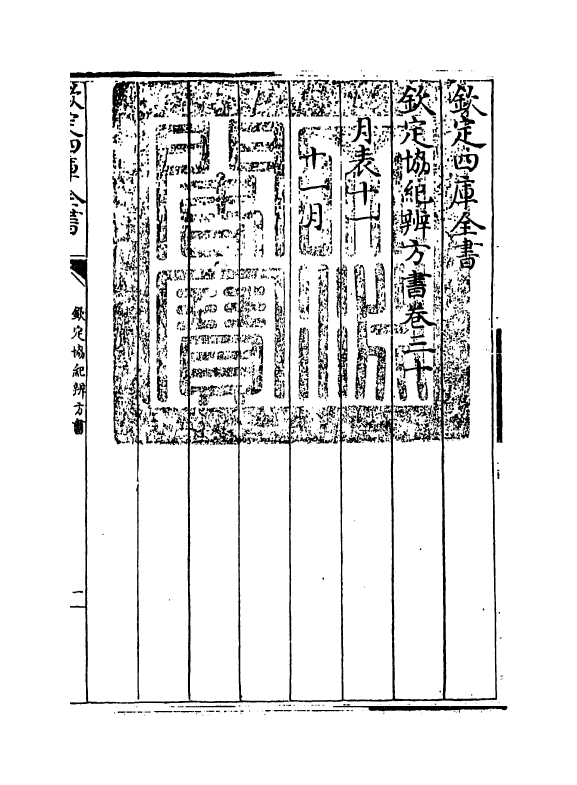 欽定四庫全書
欽定協紀辨方書卷三十
月表十一
十一月
欽定四庫全書
欽定協紀辨方書
一